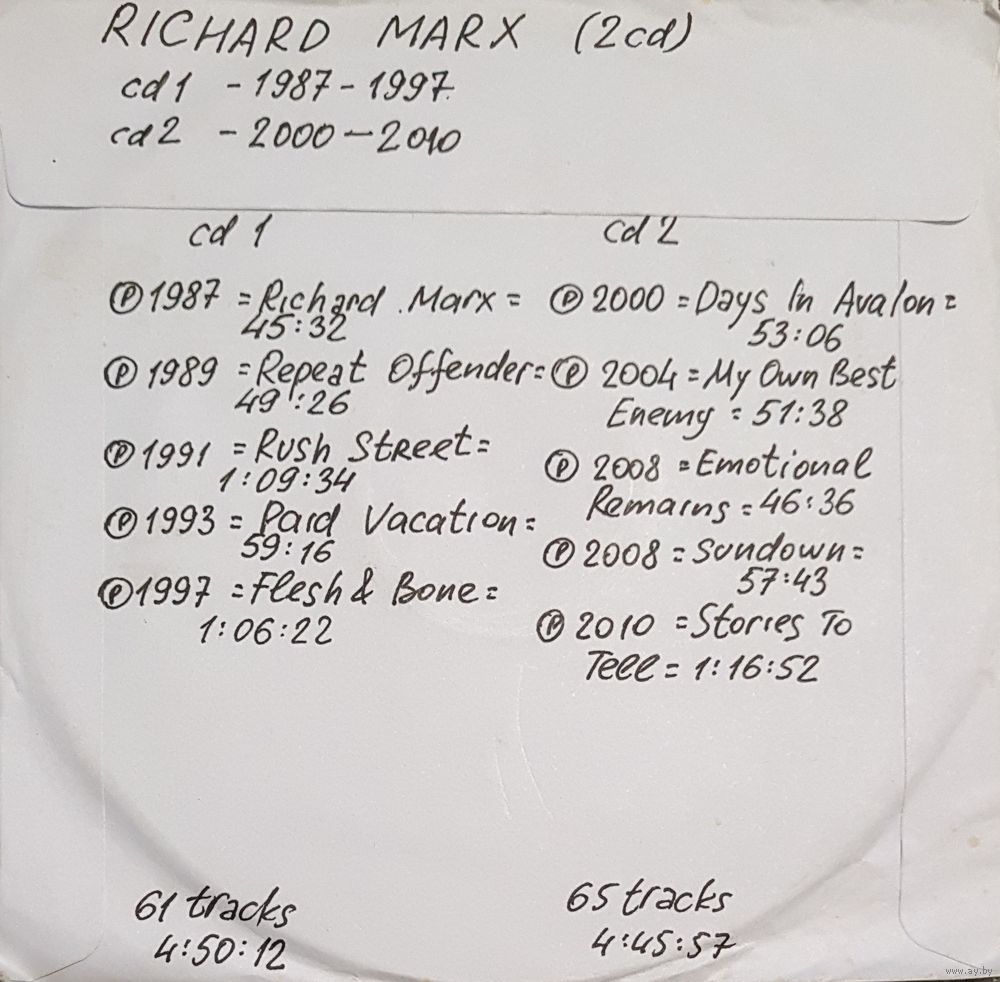 RICHARD MARX (2cd)
cd1 - 1987 - 1997
cd2 - 2000 - 2010
cd 1
Ⓟ 1987 = Richard Marx =
45:32
Ⓟ 1989 = Repeat Offender =
49:26
Ⓟ 1991 = Rush Street =
1:09:34
Ⓟ 1993 = Paid Vacation =
59:16
Ⓟ 1997 = Flesh & Bone =
1:06:22
61 tracks
4:50:12
cd 2
Ⓟ 2000 = Days In Avalon =
53:06
Ⓟ 2004 = My Own Best
Enemy = 51:38
Ⓟ 2008 = Emotional
Remains = 46:36
Ⓟ 2008 = Sundown =
57:43
Ⓟ 2010 = Stories To
Tell = 1:16:52
65 tracks
4:45:57
www.ay.by